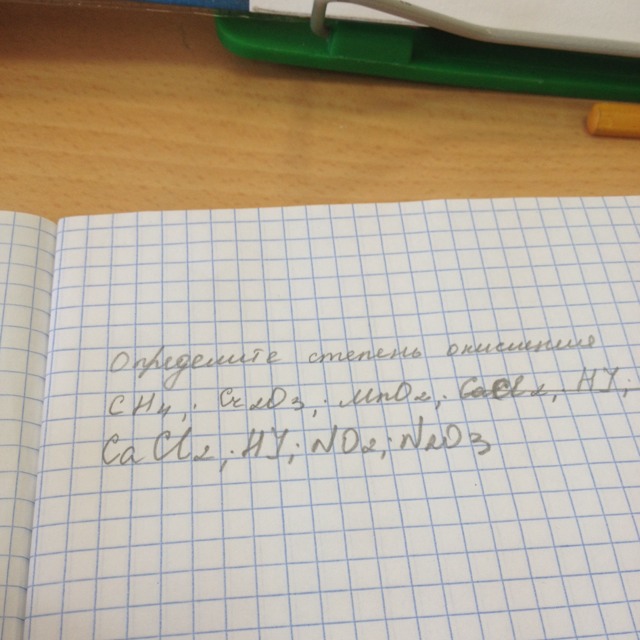 Определите степень окисления
CH4; Cr2O3; MnO2; CaCl2, HJ;
CaCl2; HJ; NO2; N2O3